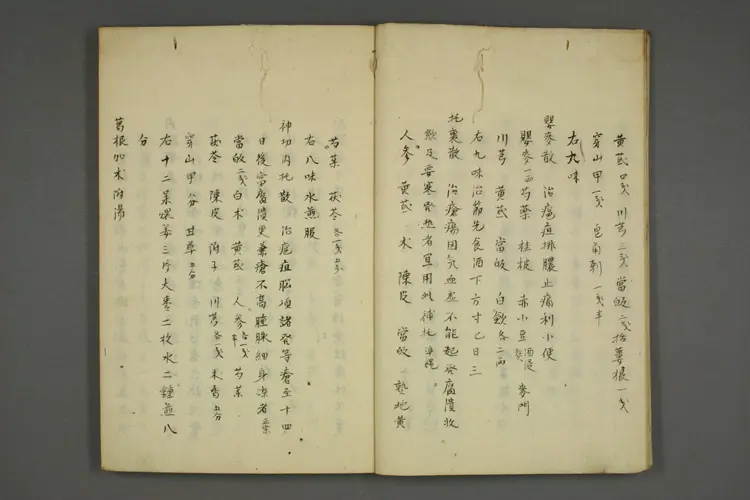 黄芪四戋 川芎三戋 當皈二戋 括蔞根一戋
穿山甲一戋 皂角刺一戋半
右九味
瞿麥散 治疱疽排膿止痛利小便
瞿麥一両 芍藥 桂枝 赤小豆酒浸 麥門
川芎 黄芪 當皈 白歛各二両
右九味治篩先食酒下方寸匕日三
托裏散 治瘡瘍因気血虚不能起發腐潰收
歛及悪寒發热者宜用此補托
人參 黄芪 术 陳皮 當皈 熟地黄
芍薬 茯苓各一戋五分
右八味水煎服
神功内托散 治疱疽脳項諸發等瘡至十四
日後當腐潰更兼瘡不高腫脉細身凉者
當皈二戋 白术 黄芪 人參各一戋半 芍薬
茯苓 陳皮 附子 川芎各一戋 木香五分
穿山甲八分 甘草五分
右十二味煨姜三片大棗二枚水二鍾煎八
分
葛根加术附湯